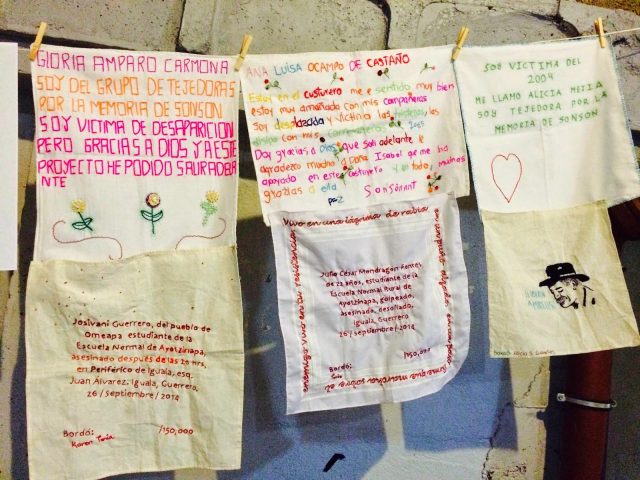 GLORIA AMPARO CARMONA
SOY DEL GRUPO DE TEJEDORAS
POR LA MEMORIA DE SONSON
SOY VICTIMA DE DESAPARICION
PERO GRACIAS A DIOS Y A ESTE
PROYECTO HE PODIDO
NTE
ANA LUISA OCAMPO DE CASTAÑO
Estoy en el custurero me e sentido muy bien
estoy muy amañada con mis compañeras
Soy desplazada y victima las
con mis
Doy gracias a Dios que sali adelante le
agradezco mucho a doña Isabel que me ha
apoyado en este custurero y en todo muchas
gracias a ella
paz SonSonant
SOY VICTIMA DEL
2004
ME LLAMO ALICIA MEJIA
SOY TEJEDORA POR LA
MEMORIA DE SONSON
Josivani Guerrero, del pueblo de
Omeapa estudiante de la
Escuela Normal de Ayotzinapa,
asesinado después de las 24 hrs,
en Periférico de Iguala, esq.
Juan Alvarez. Iguala, Guerrero.
26/septiembre/2014
Bordó: /150,000
Karen
Vivo en una lágrima de rabia
Julio César Mondragón Fontes
de 22 años, estudiante de la
Escuela Normal Rural de
Ayotzinapa, golpeado,
asesinado, desollado,
Iguala, Guerrero
26/septiembre/2014
Bordó: /150,000